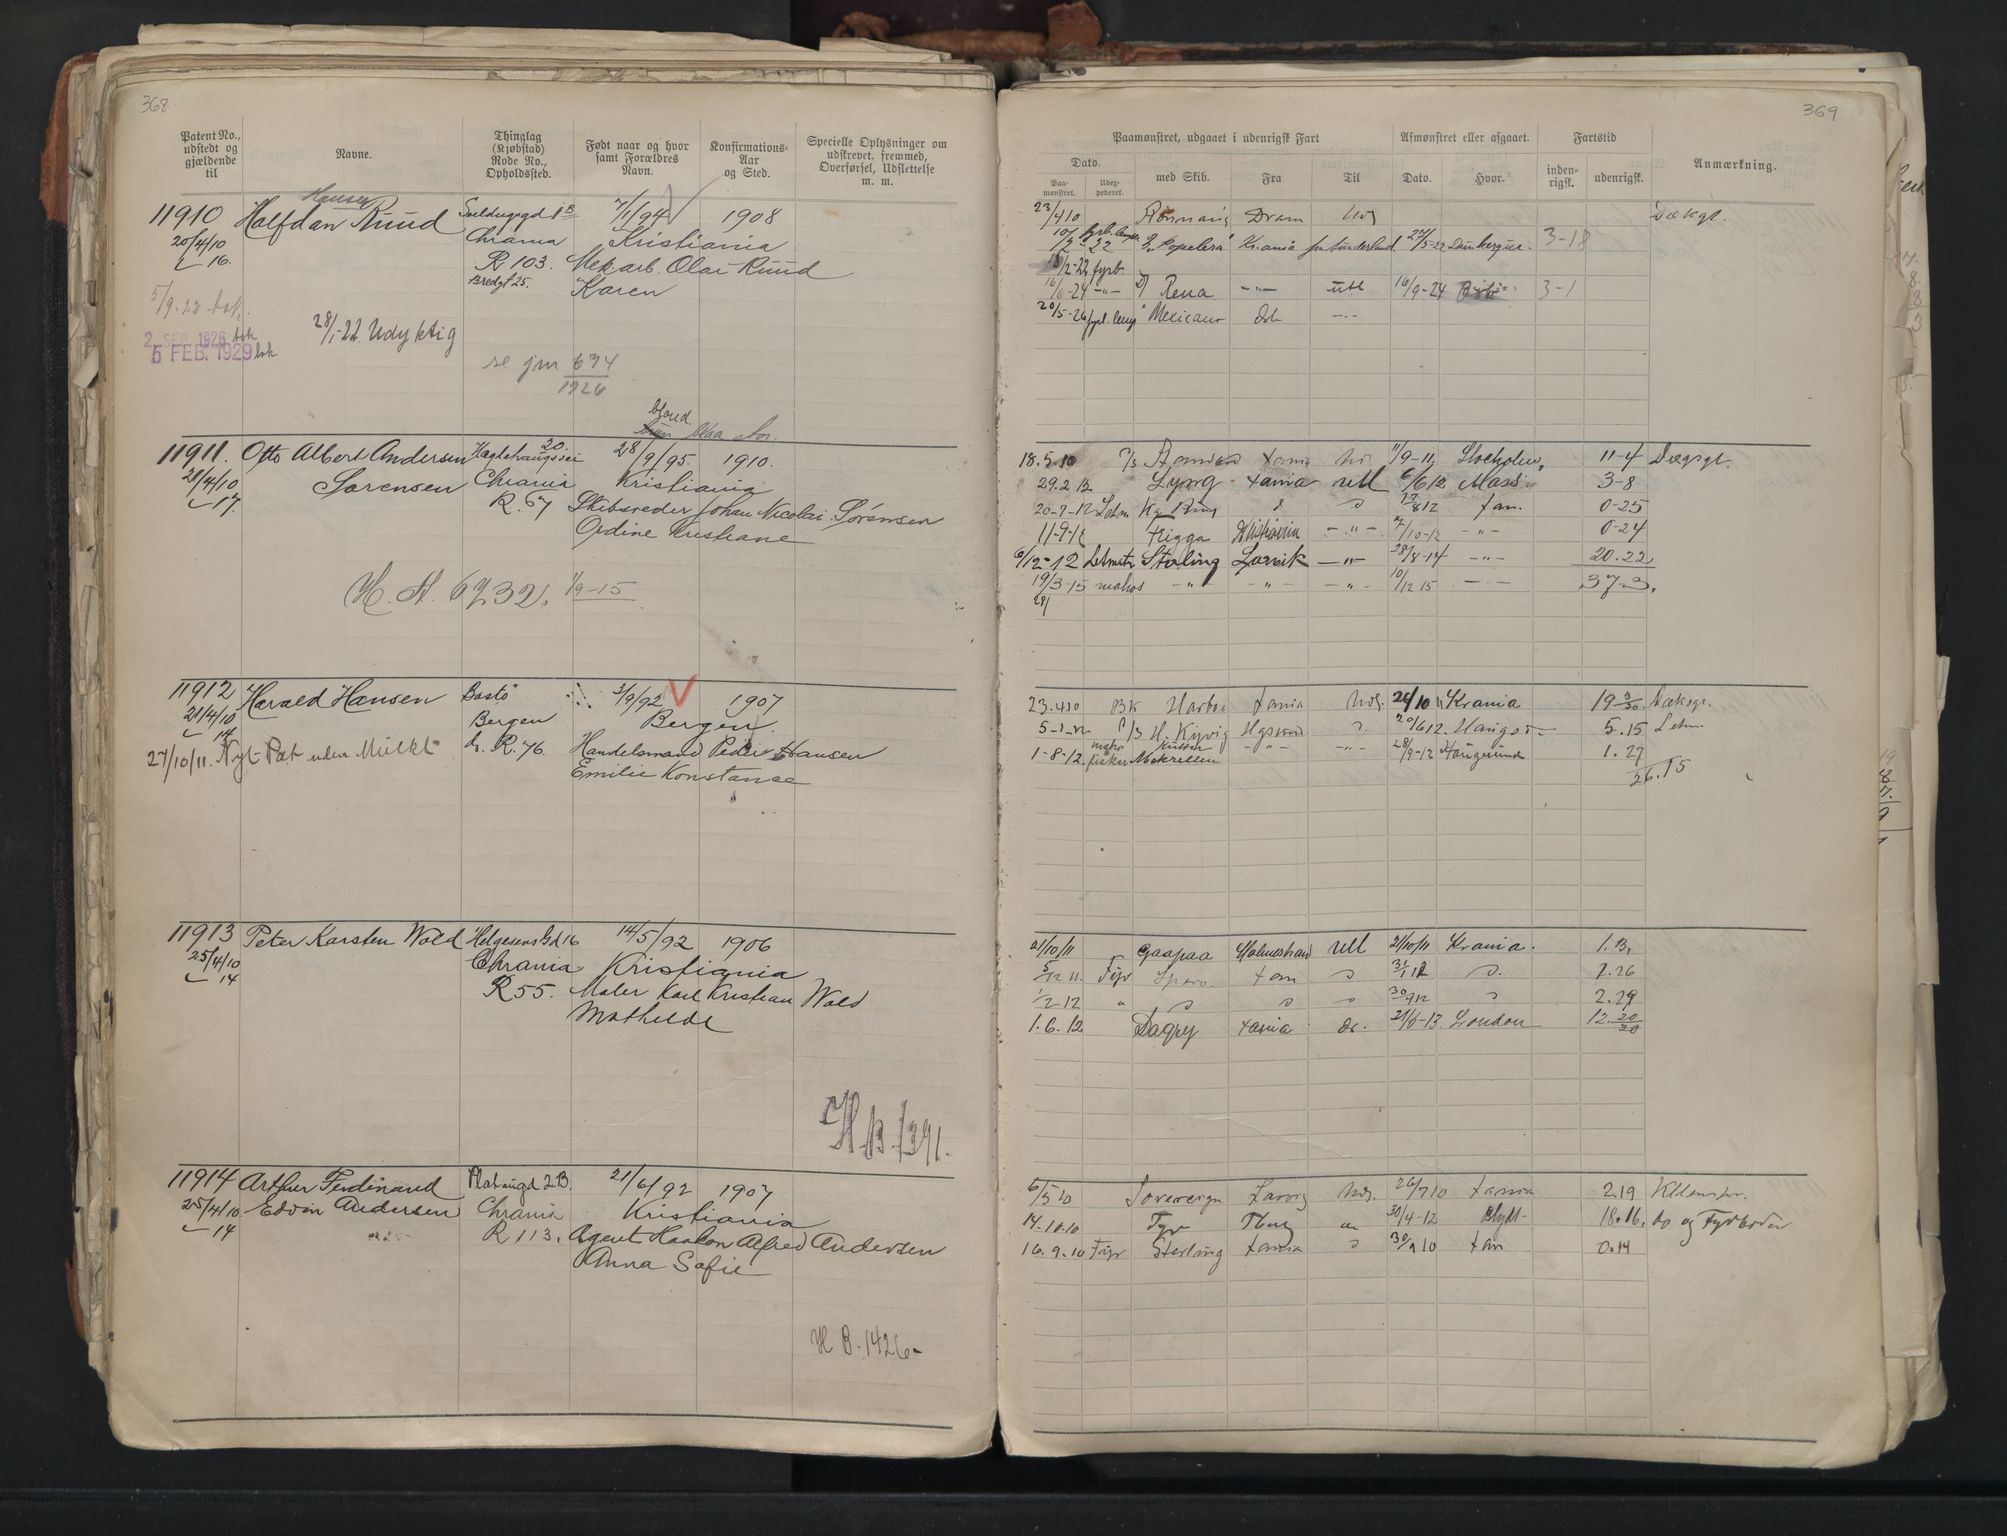 368
Patent No., udstedt og gjældende til
Navne.
Thinglag (Kjøbstad) Rode No., Opholdssted.
Født naar og hvor samt Forældres Navn.
Konfirmations-Aar og Sted.
Specielle Oplysninger om udskrevet, fremmed, Overførsel, Udslettelse m. m.
Hansen
11910 Halfdan Ruud 7/1/94 1908
20/4/10 Chrania Kristiania
16. R 103. Mek arb. Olai Ruud
Bredgt 25. Karen
5/9-22 bok.
28/1-22 Udyktig
2 SEP. 1926 bok
5 FEB. 1929 bok
se jnr 634
1926
blond
blaa stor.
11911. Otto Albert Andersen 20. 28/9/95. 1910.
21/4/10 Sørensen Chrania Kristiania
17. R. 67 Skibsreder Johan Nicolai Sørensen
Ordine Kristiane
H. A. 6732. 1/9-15
11912 Harald Hansen Bastø 3/9/92 1907
21/4/10 Bergen Bergen
14
27/10/11. Nyt Pat uden Mulkt do. R. 76. Handelsmand Peder Hansen
Emilie Konstance
11913 Peter Karsten Wold Helgesens Gd 16 14/5/92 1906
25/4/10 Chrania Kristiania
14 R 55. Maler Karl Kristian Wold
Mathilde
H.B. 1391.
11914 Arthur Ferdinand 2B. 21/6/92 1907
25/4/10 Edvin Andersen Chrania Kristiania
14 R 113. Agent Haakon Alfred Andersen
Anna Sofie
H B. 1426-
369
Paamønstret, udgaaet i udenrigsk Fart
Afmønstret eller afgaaet.
Fartstid
Anmærkning.
Dato.
Paamønstret.
Uderpederet.
med Skib.
Fra
Til
Dato.
Hvor.
indenrigsk.
udenrigsk.
23/4 10 Dram Uds Dæksgt.
10/2-22 "Popelera" Krania 27/5-22 Dunkerque 3-18
18/2-22 fyrb.
16/6-24 -"- D/ Rena -"- utl 16/9-24 3-1
20/5-26 " Mexicano Osl -"-
18.5.10 Xania 11/9-11 Stockholm 11-4 Dægsgt.
29.2 12 Lyng Xania utl 6/6 12. Mass 3-8
20-7-12 Letm 17/8 12 Xan. 0-25
11-9-12 Frigga -"- 7/10-12 -"- 0-24
6/12-12 Letmatr Sterling Larvik -"- 28/8-14 -"- 20.22
19/3-15 matros -"- -"- -"- 10/12 15 37-3.
29/
23.4 10 Xania Uds. 24/10 Krania 19 3/30 Dæksgt.
H. Kyvig Hgsund 20/6 12. 5.15 Letm.
1-8-12. Makrellen -"- -"- 28/9-12 Haugesund 1.27
26.15
21/10/11 Gaapaa Holmestrand utl 21/10/11 Krania. 1.
5/12 11. Fyr Spero Xan 31/1 12 1.26
1/2 12 30/ 12 2.29
1.6.12 Dagny Xania do. 21/6-13. London 12. 20/30
6/5 10 Sovereign Larvig Uds. 26/7 10 Xania 2.19
14.10.10 Fyr Tbug 30/4-12 Blyth 18.16. do og Fyrbøder
16.9.10 Fyr Sterling Xania 30/9 10 Xan 0.14